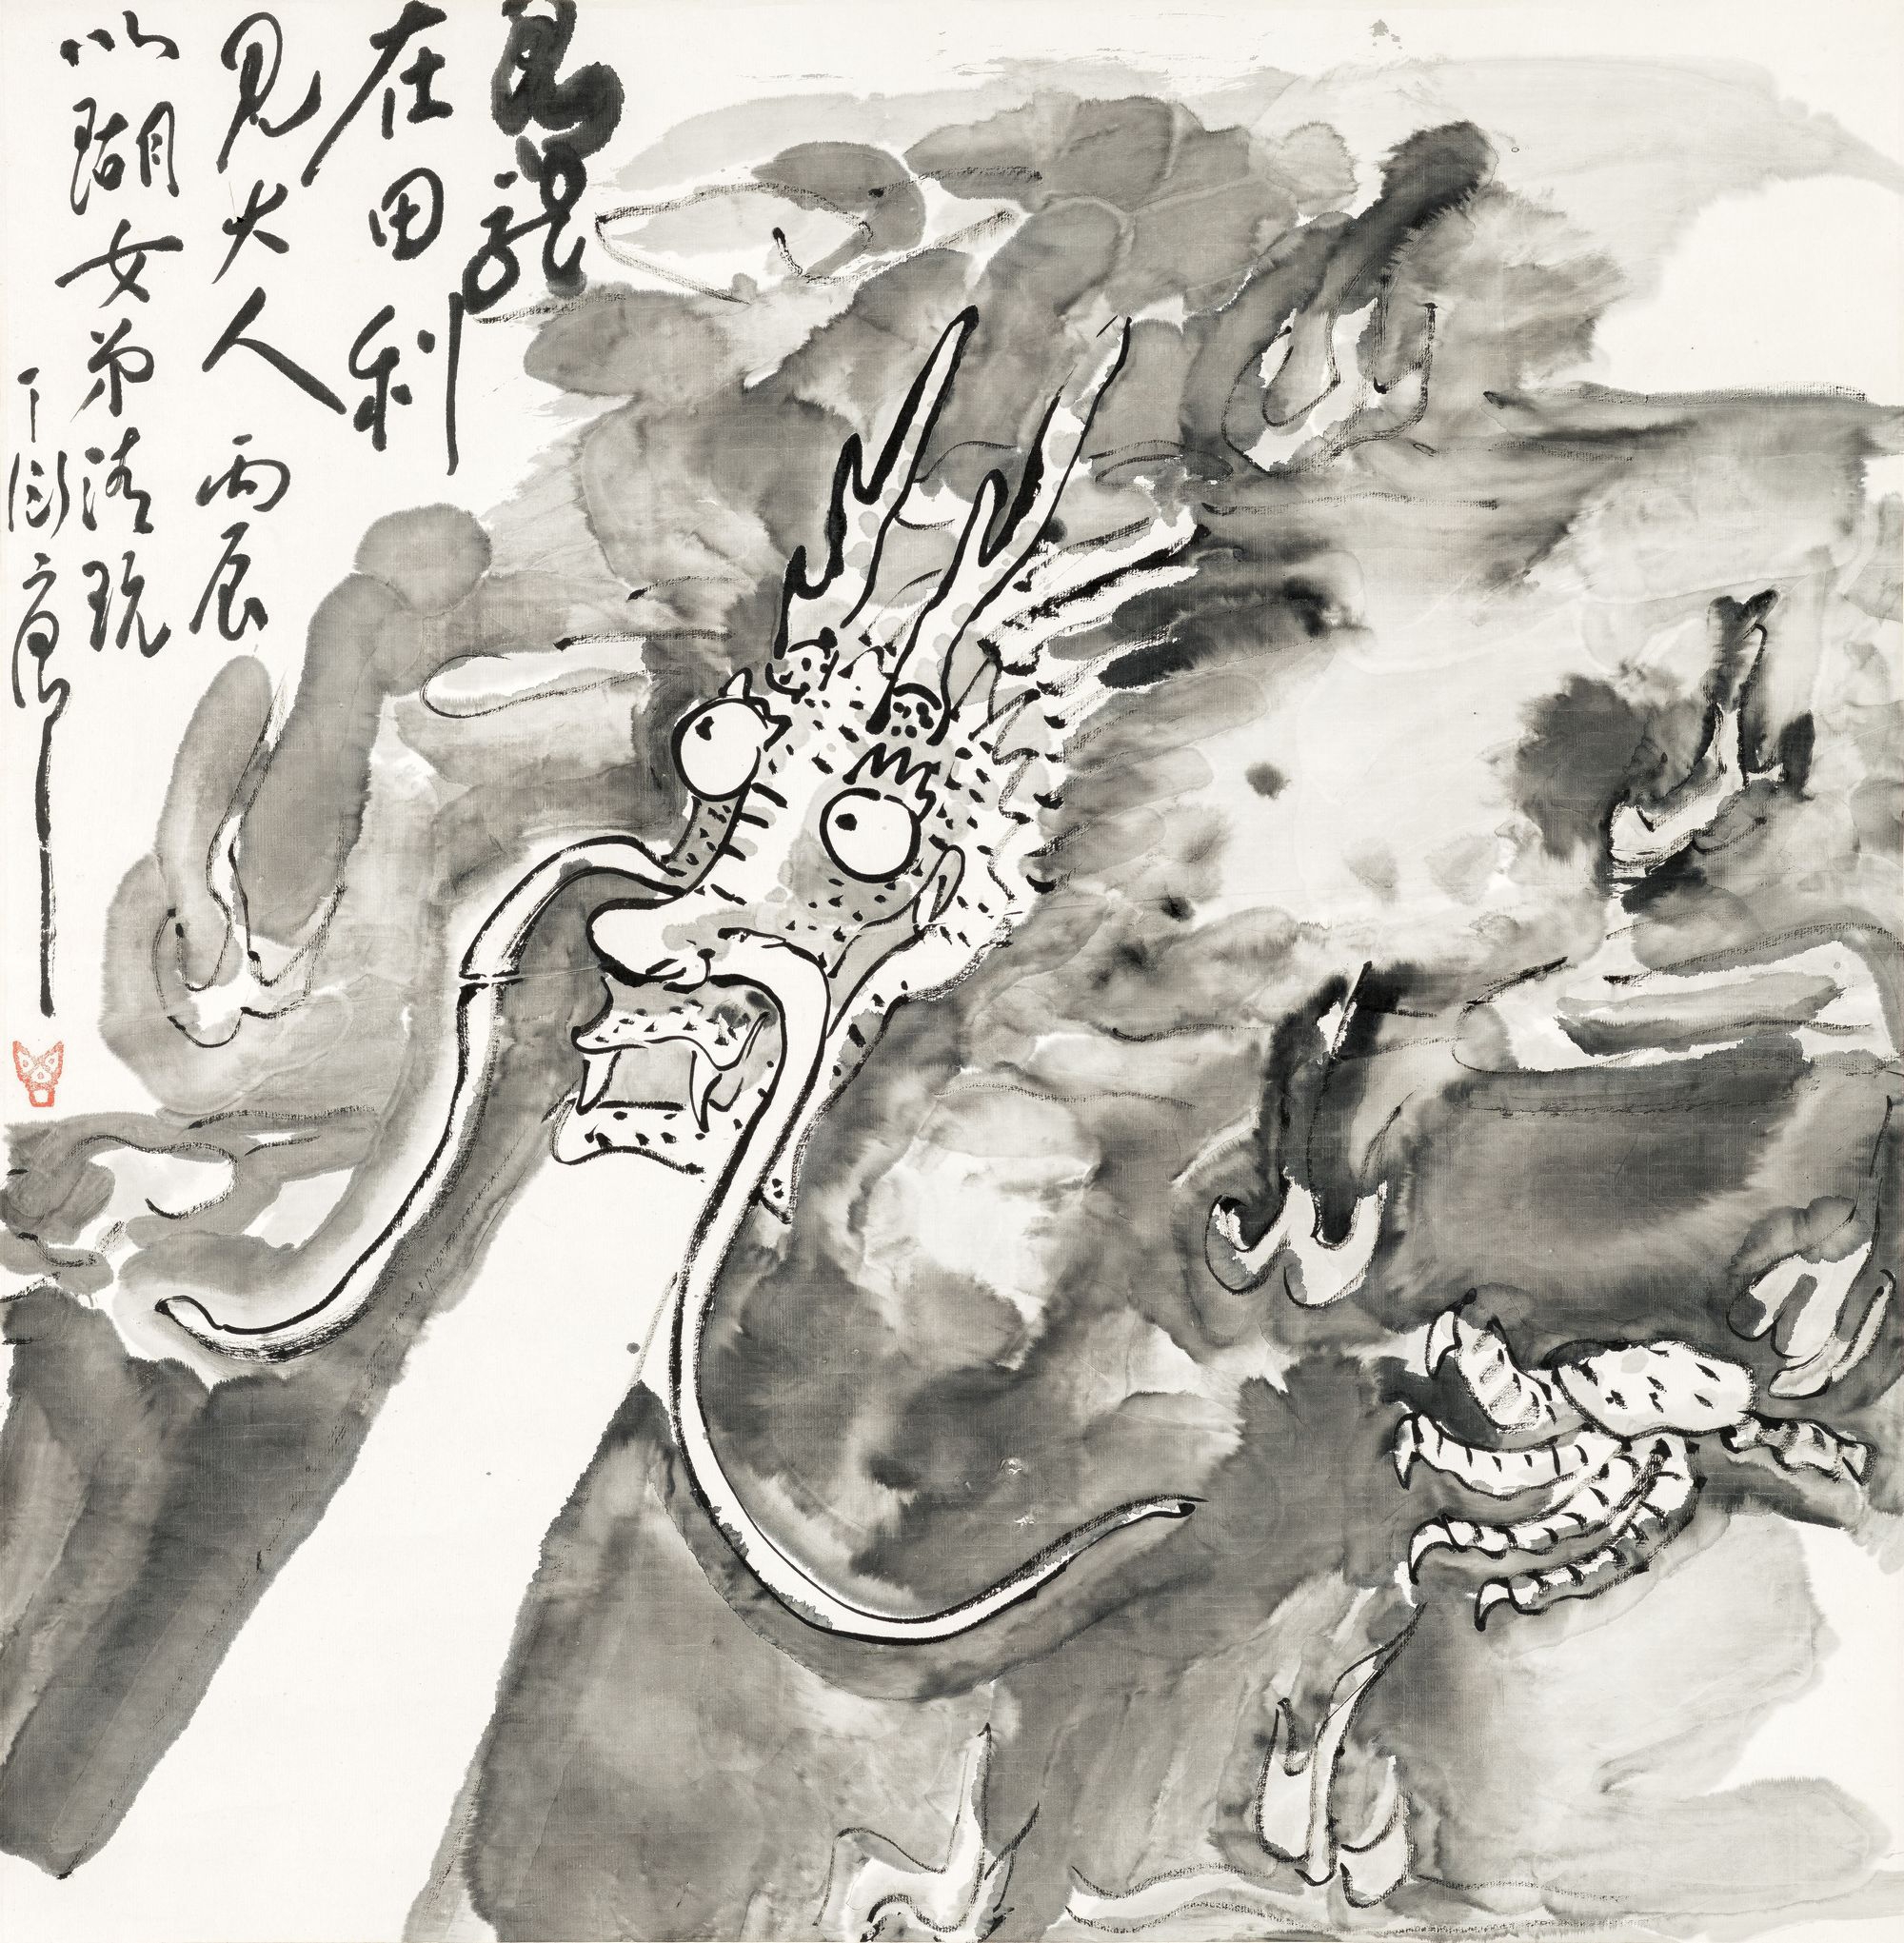 見龍
在田利
見大人 丙辰
以瑚女弟清玩
丁衍庸